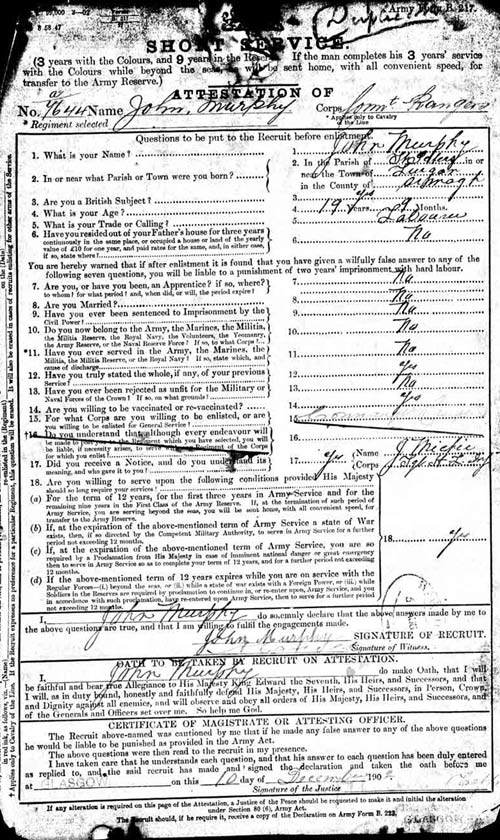 Army Form B. 217.
SHORT SERVICE.
(3 years with the Colours, and 9 years in the Reserve. If the man completes his 3 years' service
with the Colours while beyond the seas, will be sent home, with all convenient speed, for
transfer to the Army Reserve.)
ATTESTATION OF
No. 9644 Name John Murphy Corps Connt Rangers
* Regiment selected * Applies only to Cavalry of the Line
Questions to be put to the Recruit before enlistment.
1. What is your Name? 1. John Murphy
2. In or near what Parish or Town were you born? 2. In the Parish of in or
near the Town of Lurgan
in the County of Armagh
3. Are you a British Subject? 3. Yes
4. What is your Age? 4. 19 Years Months.
5. What is your Trade or Calling? 5. Labourer
6. Have you resided out of your Father's house for three years
continuously in the same place, or occupied a house or land of the yearly
value of £10 for one year, and paid rates for the same, and, in either case,
if so, state where? 6. No
You are hereby warned that if after enlistment it is found that you have given a wilfully false answer to any of the
following seven questions, you will be liable to a punishment of two years' imprisonment with hard labour.
7. Are you, or have you been, an Apprentice? if so, where?
to whom? for what period? and, when did, or will, the period expire? 7. No
8. Are you Married? 8. No
9. Have you ever been sentenced to Imprisonment by the
Civil Power? 9. No
10. Do you now belong to the Army, the Marines, the Militia,
the Militia Reserve, the Royal Navy, the Volunteers, the Yeomanry,
the Army Reserve, or the Naval Reserve Force? If so, to what Corps? 10. No
*11. Have you ever served in the Army, the Marines, the
Militia, the Militia Reserve, or the Royal Navy? If so, state which, and
cause of discharge 11. No
12. Have you truly stated the whole, if any, of your previous
Service? 12. Yes
13. Have you ever been rejected as unfit for the Military or
Naval Forces of the Crown? If so, on what grounds? 13. No
14. Are you willing to be vaccinated or re-vaccinated? 14. Yes
15. For what Corps are you willing to be enlisted, or are
you willing to be enlisted for General Service? 15.
†16. Do you understand that although every endeavour will
be made to the Regiment which you have selected, you will
be liable, if necessity arises, to serve Regiment of the Corps
for which you enlist? 16.
17. Did you receive a Notice, and do you understand its
meaning, and who gave it to you? 17. Yes Name J Michie
Corps
18. Are you willing to serve upon the following conditions provided His Majesty
should so long require your services?
(a) For the term of 12 years, for the first three years in Army Service and for the
remaining nine years in the First Class of the Army Reserve. If, at the termination of such period of
Army Service, you are serving beyond the seas, you will be sent home, with all convenient speed, for
transfer to the Army Reserve.
(b) If, at the expiration of the above-mentioned term of Army Service a state of War
exists, then, if so directed by the Competent Military Authority, to serve in Army Service for a further
period not exceeding 12 months.
(c) If, at the expiration of the above-mentioned term of Army Service, you are so
required by a Proclamation from His Majesty in case of imminent national danger or great emergency
then to serve in Army Service so as to complete your term of 12 years, and for a further period not exceeding
12 months.
(d) If the above-mentioned term of 12 years expires while you are on service with the
Regular Forces—(i.) beyond the seas, or (ii.) while a state of war exists with a Foreign Power, or (iii.) while
Soldiers in the Reserve are required by proclamation to continue in, or re-enter upon, Army Service, and you
in accordance with such proclamation, have re-entered upon Army Service, then to serve for a further period
not exceeding 12 months.
18. Yes
I, John Murphy do solemnly declare that the above answers made by me to
the above questions are true, and that I am willing to fulfil the engagements made.
John Murphy SIGNATURE OF RECRUIT.
Signature of Witness.
OATH TO BE TAKEN BY RECRUIT ON ATTESTATION.
I, John Murphy do make Oath, that I will
be faithful and bear true Allegiance to His Majesty King Edward the Seventh, His Heirs, and Successors, and that
I will, as in duty bound, honestly and faithfully defend His Majesty, His Heirs, and Successors, in Person, Crown,
and Dignity against all enemies, and will observe and obey all orders of His Majesty, His Heirs, and Successors, and
of the Generals and Officers set over me. So help me God.
CERTIFICATE OF MAGISTRATE OR ATTESTING OFFICER.
The Recruit above-named was cautioned by me that if he made any false answer to any of the above questions
he would be liable to be punished as provided in the Army Act.
The above questions were then read to the recruit in my presence.
I have taken care that he understands each question, and that his answer to each question has been duly entered
as replied to, and the said recruit has made and signed the declaration and taken the oath before me
at GLASGOW on this 10 day of December 190
Signature of the Justice
If any alteration is required on this page of the Attestation, a Justice of the Peace should be requested to make it and initial the alteration
under Section 80 (6), Army Act.
The Recruit should, if he require it, receive a copy of the Declaration on Army Form B. 222.
GLASGOW